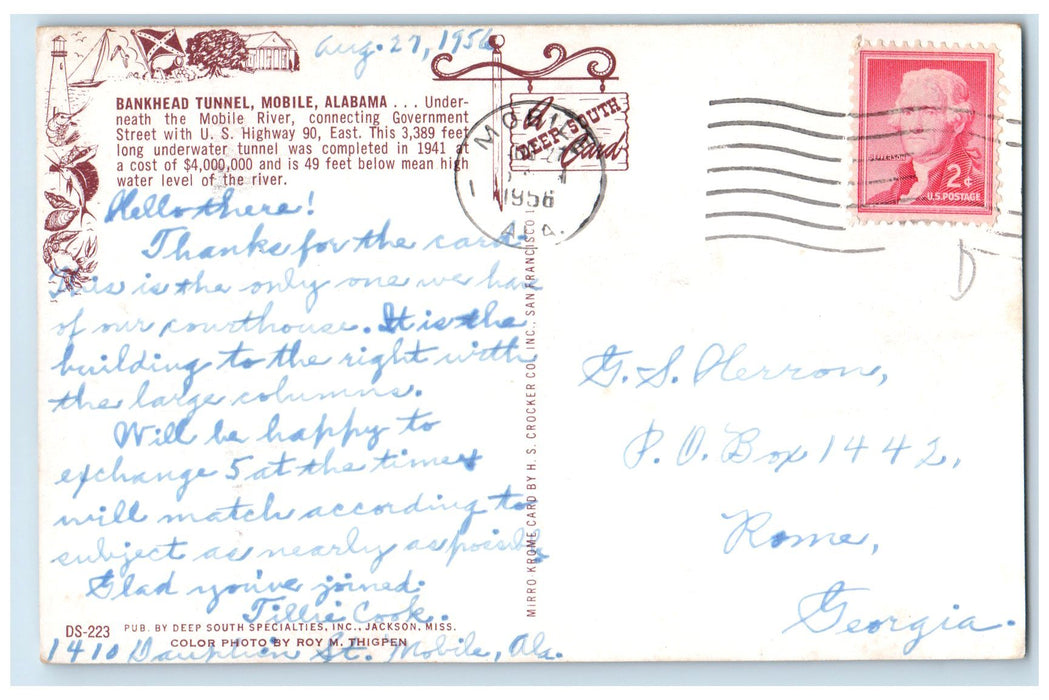 Aug. 27, 1956
BANKHEAD TUNNEL, MOBILE, ALABAMA ... Under-
neath the Mobile River, connecting Government
Street with U. S. Highway 90, East. This 3,389 feet
long underwater tunnel was completed in 1941 at
a cost of $4,000,000 and is 49 feet below mean high
water level of the river.
A
DEEP SOUTH
Card
MOBILE
1956
ALA.
2¢
U.S. POSTAGE
D
Hello there!
Thanks for the card.
This is the only one we have
of our courthouse. It is the
building to the right with
the large columns.
Will be happy to
exchange 5 at the time &
will match according to
subject as nearly as possible
Glad you've joined.
Tillie Cook.
1410 Dauphin St. Mobile, Ala.
DS-223 PUB. BY DEEP SOUTH SPECIALTIES, INC., JACKSON, MISS.
COLOR PHOTO BY ROY M. THIGPEN
MIRRO-KROME CARD BY H. S. CROCKER CO., INC., SAN FRANCISCO 1
G. S. Herron,
P. O. Box 1442,
Rome,
Georgia.